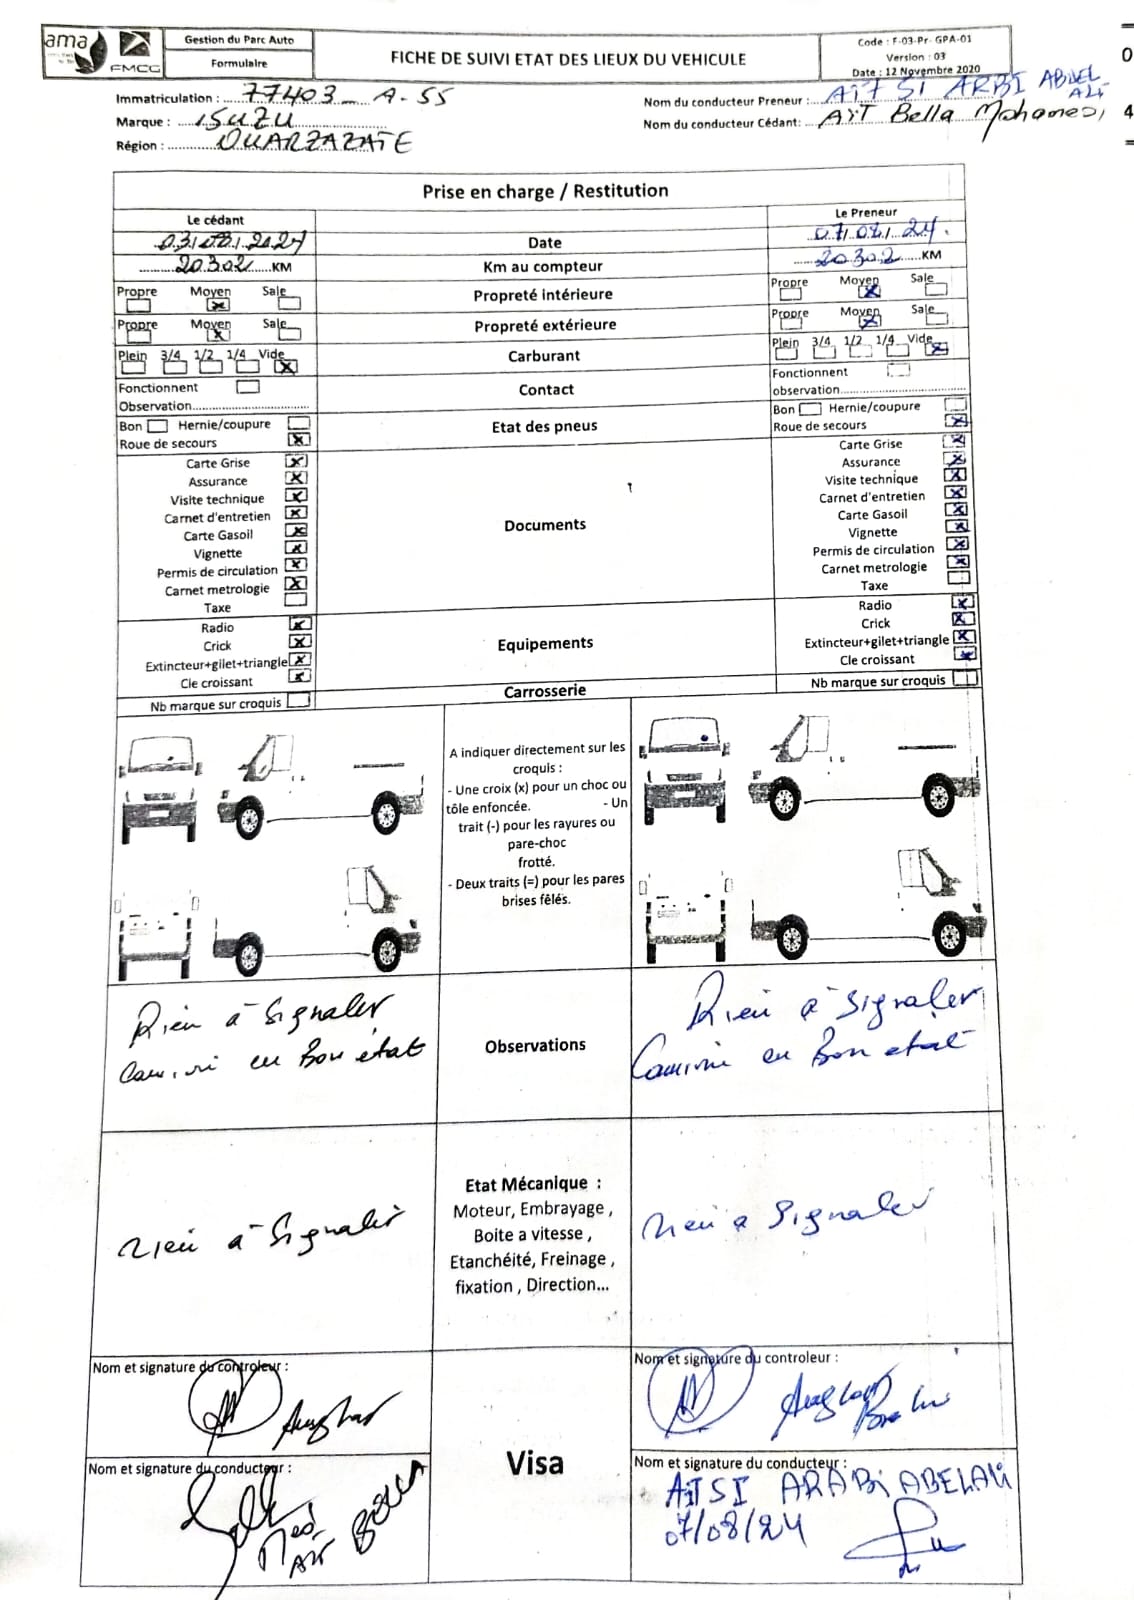 ama
FMCG
Gestion du Parc Auto
Formulaire
FICHE DE SUIVI ETAT DES LIEUX DU VEHICULE
Code : F-03-Pr- GPA-01
Version : 03
Date : 12 Novembre 2020
0
4
Immatriculation : 77403 A-55
Marque : ISUZU
Région : OUARZAZATE
Nom du conducteur Preneur : AIT SI ARBI ABDEL ALI
Nom du conducteur Cédant: AIT Bella Mohamed
Prise en charge / Restitution
Le cédant
Le Preneur
03/08/2024 Date 07/08/24.
20302 KM Km au compteur 20302 KM
Propre Moyen Sale Propreté intérieure Propre Moyen Sale
Propre Moyen Sale Propreté extérieure Propre Moyen Sale
Plein 3/4 1/2 1/4 Vide Carburant Plein 3/4 1/2 1/4 Vide
Fonctionnent Contact Fonctionnent
Observation observation
Bon Hernie/coupure Etat des pneus Bon Hernie/coupure
Roue de secours Roue de secours
Carte Grise Carte Grise
Assurance Assurance
Visite technique Visite technique
Carnet d'entretien Documents Carnet d'entretien
Carte Gasoil Carte Gasoil
Vignette Vignette
Permis de circulation Permis de circulation
Carnet metrologie Carnet metrologie
Taxe Taxe
Radio Radio
Crick Equipements Crick
Extincteur+gilet+triangle Extincteur+gilet+triangle
Cle croissant Cle croissant
Nb marque sur croquis Carrosserie Nb marque sur croquis
A indiquer directement sur les
croquis :
- Une croix (x) pour un choc ou
tôle enfoncée. - Un
trait (-) pour les rayures ou
pare-choc
frotté.
- Deux traits (=) pour les pares
brises fêlés.
Rien à Signaler
Camini en Bon état
Observations
Rien à Signaler
Camini en Bon etat
Rien à Signaler
Etat Mécanique :
Moteur, Embrayage ,
Boite a vitesse ,
Etanchéité, Freinage ,
fixation , Direction...
Rien a Signaler
Nom et signature du controleur :
Nom et signature du controleur :
Visa
Nom et signature du conducteur :
Med
AIT BELLA
Nom et signature du conducteur :
AIT SI ARABI ABELALI
07/08/24